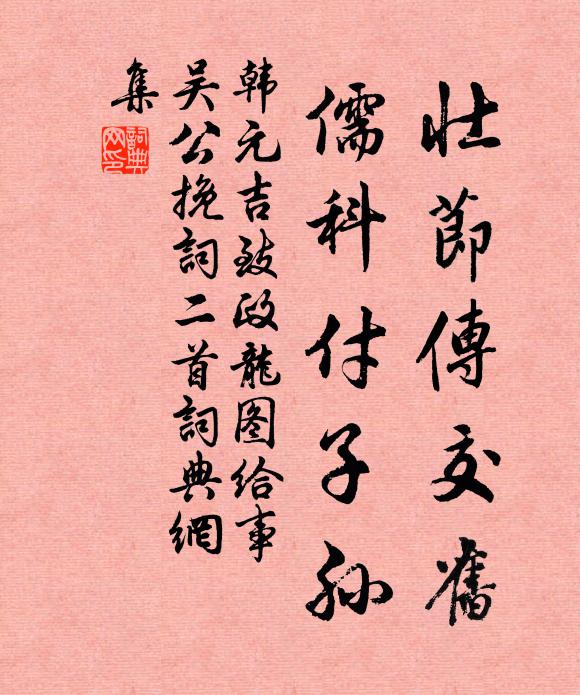 壮節傳交舊
儒科付子孙
韩元吉致政龍图给事
吴公挽詞二首詞典網
集
詞典
网印